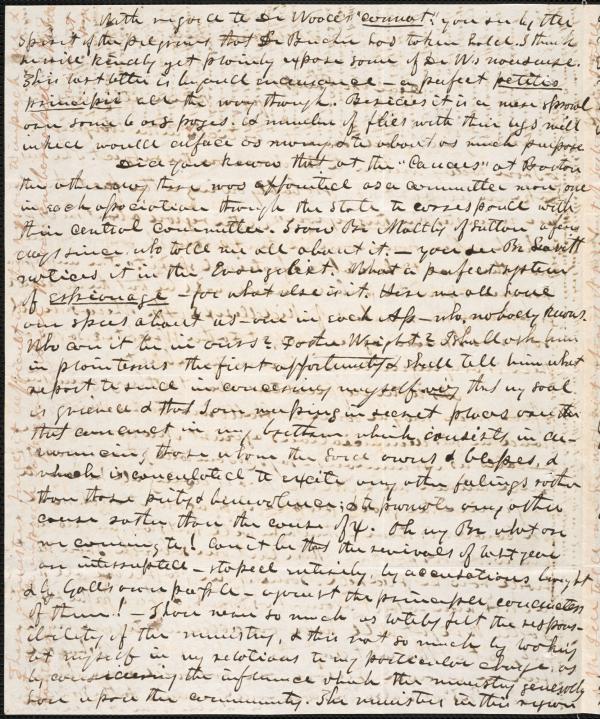 With regard to Dr Woods's "cannot." you see by the
spirit of the pilgrims that Dr Beecher has taken hold. I think
he will kindly yet plainly expose some of Dr W's nonsense.
This last letter is beyond endurance – a perfect petitio
principii all the way through. Besides it is a mere spread
over some 6 or 8 pages. A number of flies with their legs will
inked would deface as many & to about as much purpose
Did you know that at the "Caucus" at Boston
the other day there was appointed as a committee man, one
in each association through the State to correspond with
their central committee. I saw Br Maltby of Sutton a few
days since, who told me all about it. – you see Br Leavitt
notices it in the Evangelist. What a perfect system
of espionage – for what else is it. Here we all have
our spies about us – one in each Ass – who, nobody knows.
Who can it be in ours? Foster Wright? I shall ask him
in plain terms the first opportunity & shall tell him what
report to send in concerning myself viz that my soul
is grieved & that I am weeping in secret places over the
that conduct in my brethren which consists in de-
nouncing those whom the Lord owns & blesses, &
which is calculated to excite any other feelings rather
than those purity & benevolence; & to promote any other
cause rather than the cause of X. Oh my Br what are
we coming to! Can't be that the revivals of last year
are interrupted – stopped entirely, by accusations brought
& by God's own people – against the principal conductors
of them! – I have never so much as lately felt the respons-
ibility of the ministry, & this not so much by looking
at myself in my relations to my particular charge, as
by considering the influence which the ministry generally
have upon the community. The ministers in this region